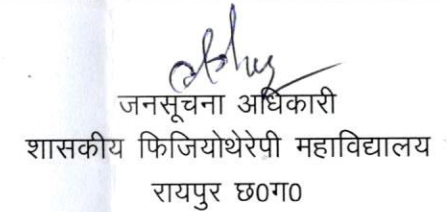 जनसूचना अधिकारी
शासकीय फिजियोथेरेपी महाविद्यालय
रायपुर छ0ग0